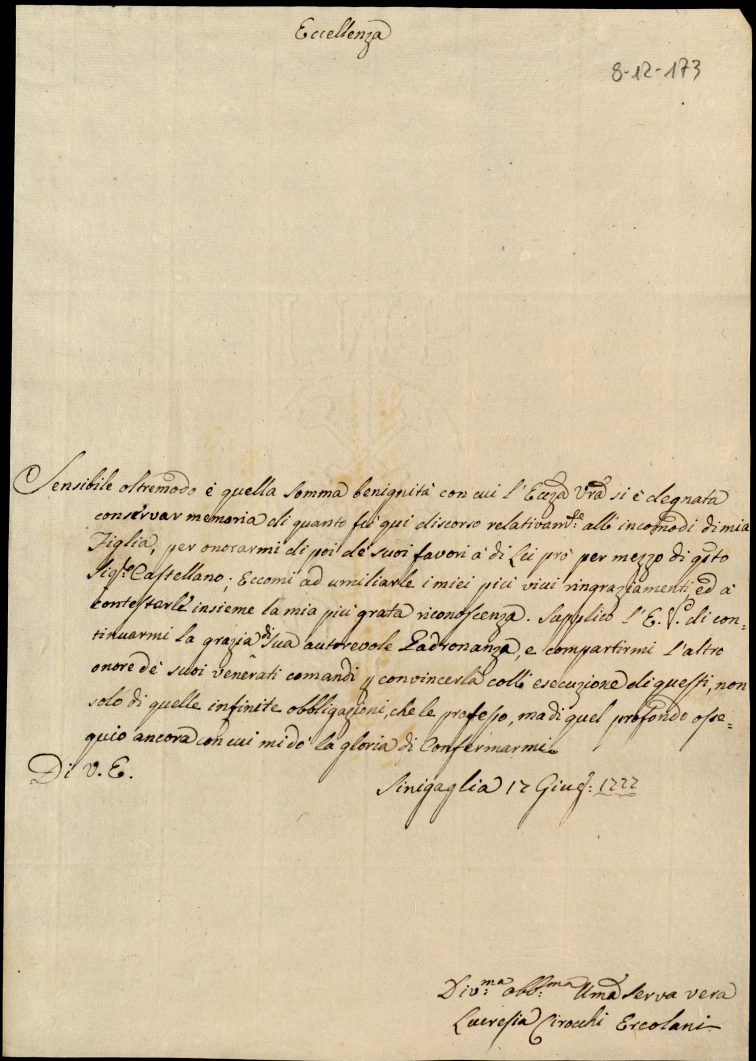 Eccellenza
8-12-173
Sensibile oltremodo è quella somma benignità con cui l'Eccza Vra si è degnata
conservar memoria di quanto fu quì discorso relativam.te all'incomodi di mia
Figlia, per onorarmi di poi de' suoi favori à di Lei prò per mezzo di qsto
Sig.r Castellano; Eccomi ad umiliarle i miei più vivi ringraziamenti, ed à
contestarle insieme la mia più grata riconoscenza. Supplico l'E. V. di con=
tinuarmi la grazia di sua autorevole Padronanza, e compartirmi l'altro
onore de' suoi venerati comandi p convincerla coll'esecuzione di questi, non
solo di quelle infinite obbligazioni, che le professo, ma di quel profondo osse=
quio ancora con cui mi do' la gloria di Confermarmi
Di V. E.
Sinigaglia 17 Giug: 1777
Div:ma obb:ma Uma serva vera
Lucresia Cirocchi Ercolani